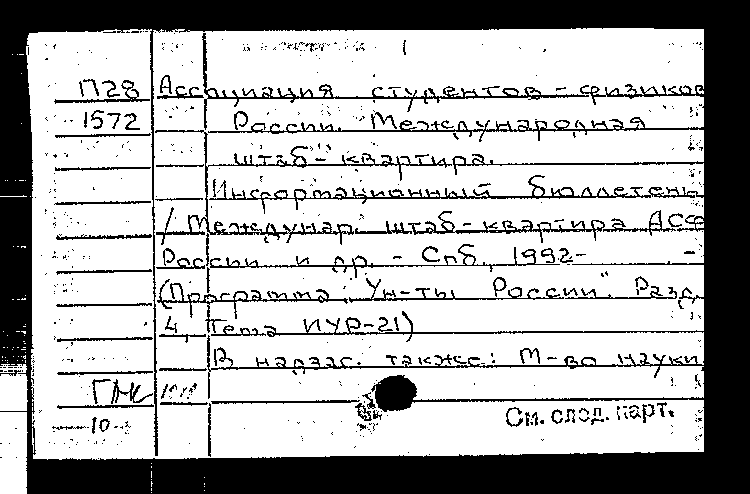 П28 Ассоциация студентов-физиков
1572 России. Международная
штаб-квартира.
Информационный бюллетень
/ Междунар. штаб-квартира АСФ
России и др. - Спб., 1992-   -
(Программа "Ун-ты России". Разд.
4, Тема ИУР-21)
В надзаг. также: М-во науки,
10
См. след. карт.